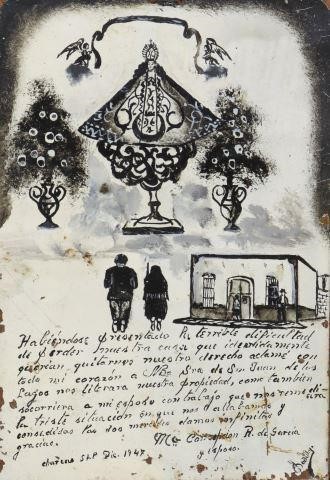 Habiéndose presentado la terrible dificultad
de perder nuestra casa que indevidamente
querian quitarnos nuestro derecho aclamé con
todo mi corazón a Ntra Sra de Sn Juan de los
Lagos nos librara nuestra propiedad, como también
socorriera a mi esposo con trabajo que nos remediara
la triste situación en que nos allabamos y
consedidas las dos mercedes damos infinitas
gracias.
Ma Consendon R. de García
y esposo.
charcas S.L.P Dic. 1947